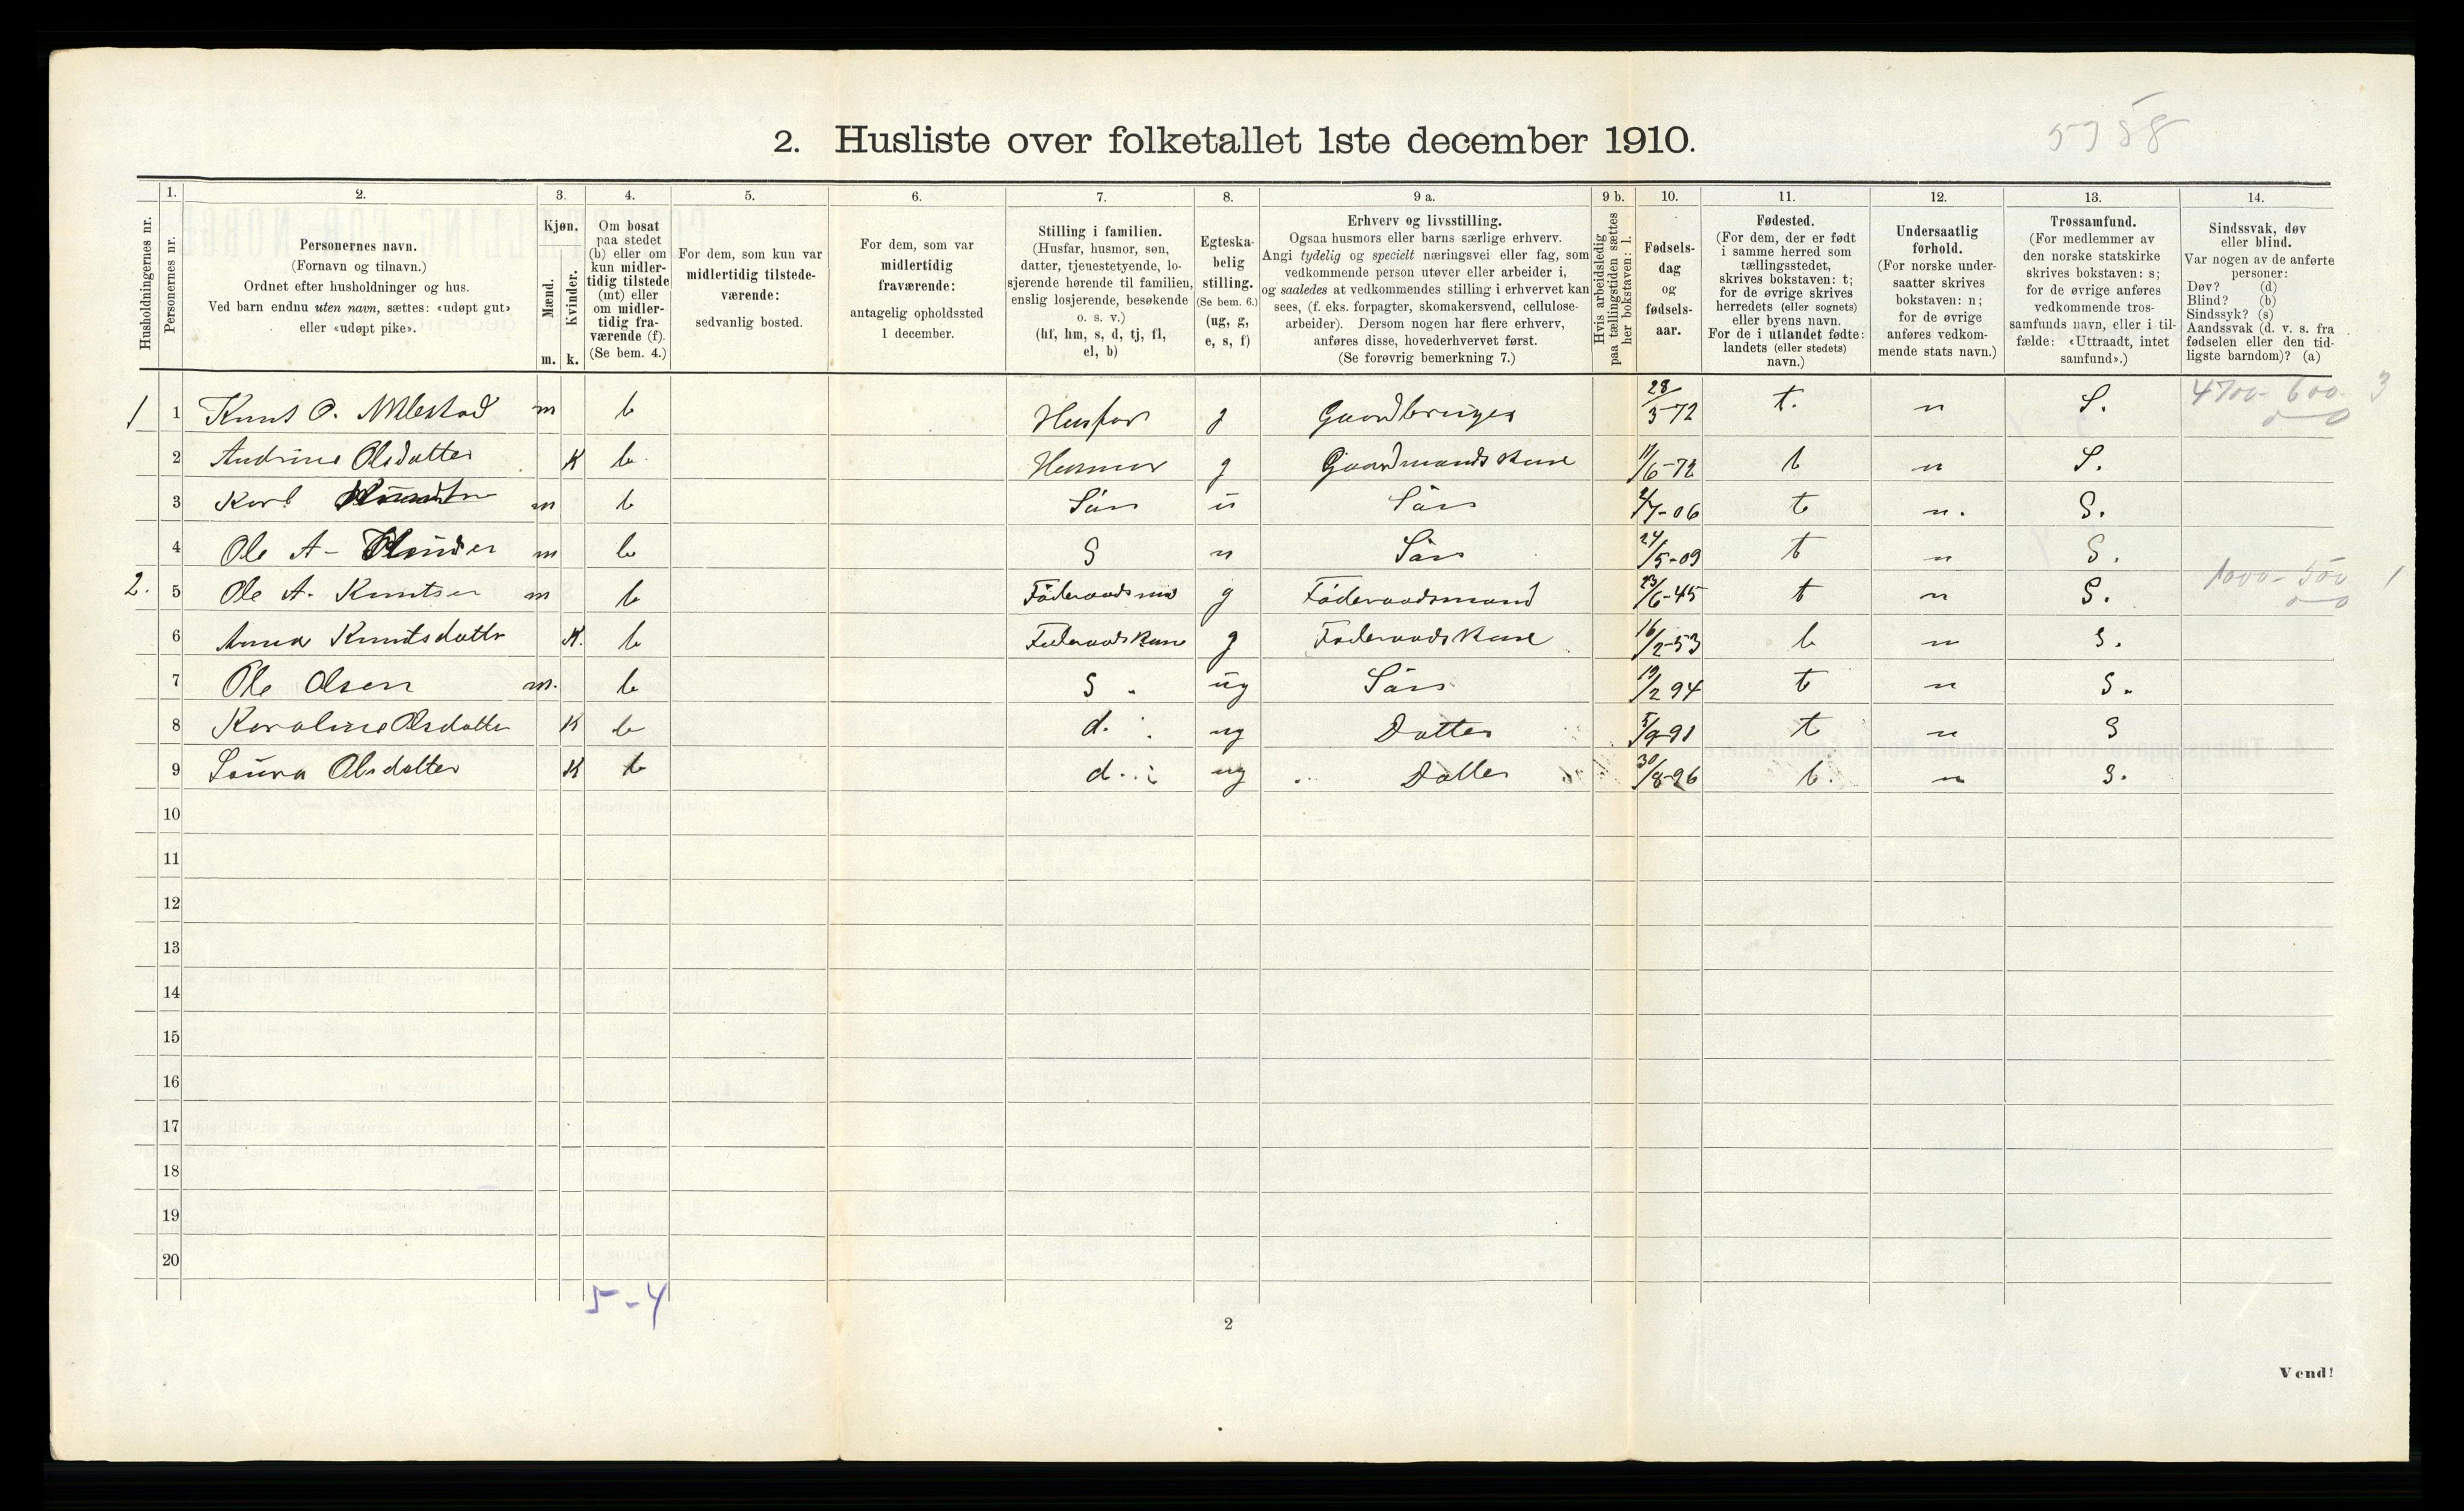 2. Husliste over folketallet 1ste december 1910.
5958
Husholdningernes nr.
1. Personernes nr.
2. Personernes navn. (Fornavn og tilnavn.) Ordnet efter husholdninger og hus. Ved barn endnu uten navn, sættes: «udøpt gut» eller «udøpt pike».
3. Kjøn. Mænd. m. Kvinder. k.
4. Om bosat paa stedet (b) eller om kun midlertidig tilstede (mt) eller om midlertidig fraværende (f). (Se bem. 4.)
5. For dem, som kun var midlertidig tilstedeværende: sedvanlig bosted.
6. For dem, som var midlertidig fraværende: antagelig opholdssted 1 december.
7. Stilling i familien. (Husfar, husmor, søn, datter, tjenestetyende, losjerende hørende til familien, enslig losjerende, besøkende o. s. v.) (hf, hm, s, d, tj, fl, el, b)
8. Egteskabelig stilling. (Se bem. 6.) (ug, g, e, s, f)
9 a. Erhverv og livsstilling. Ogsaa husmors eller barns særlige erhverv. Angi tydelig og specielt næringsvei eller fag, som vedkommende person utøver eller arbeider i, og saaledes at vedkommendes stilling i erhvervet kan sees, (f. eks. forpagter, skomakersvend, cellulosearbeider). Dersom nogen har flere erhverv, anføres disse, hovederhvervet først. (Se forøvrig bemerkning 7.)
9 b. Hvis arbeidsledig paa tællingstiden sættes her bokstaven: l.
10. Fødselsdag og fødselsaar.
11. Fødested. (For dem, der er født i samme herred som tællingsstedet, skrives bokstaven: t; for de øvrige skrives herredets (eller sognets) eller byens navn. For de i utlandet fødte: landets (eller stedets) navn.)
12. Undersaatlig forhold. (For norske undersaatter skrives bokstaven: n; for de øvrige anføres vedkommende stats navn.)
13. Trossamfund. (For medlemmer av den norske statskirke skrives bokstaven: s; for de øvrige anføres vedkommende trossamfunds navn, eller i tilfælde: «Uttraadt, intet samfund».)
14. Sindssvak, døv eller blind. Var nogen av de anførte personer: Døv? (d) Blind? (b) Sindssyk? (s) Aandssvak (d. v. s. fra fødselen eller den tidligste barndom)? (a)
1 1 Knut O. m b Husfar g Gaardbruger 28/3-72 t. n S. 4700-600- 3
2 Andrine Olsdatter K b. Husmor g Gaardmandskone 11/6-72 t n S.
3 Karl m b Sön u Sön 2/7-06 t n. S.
4 Ole A- m b S u Sön 24/5-09 t n S.
2. 5 Ole A. Knutsen m b Föderaadsma g Föderaadsmand 23/6-45 t n S. 1000-500 1
6 Anna Knutsdatter K. b Föderaadskone g Föderaadskone 16/2-53 t n S.
7 Ole Olsen m. b S. ug Sön 19/2 94 t n S.
8 Karoline Olsdatter K b d. ug Datter 5/9-91 t n S
9 Laura Olsdatter K b d. ug Datter 30/8-96 t. n S.
10
11
12
13
14
15
16
17
18
19
20
5-4
2
Vend!